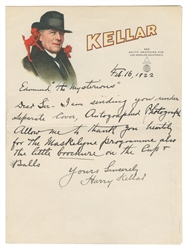 KELLAR
Feb. 16, 1922
Edmund "the mysterious"
Dear Sir - I am sending you, under
separate Cover, Autographed Photograph
Allow me to thank you heartily
for The Maskelyne programme also
the little brochure on the Cups &
Balls
Yours Sincerely
Harry Kellar